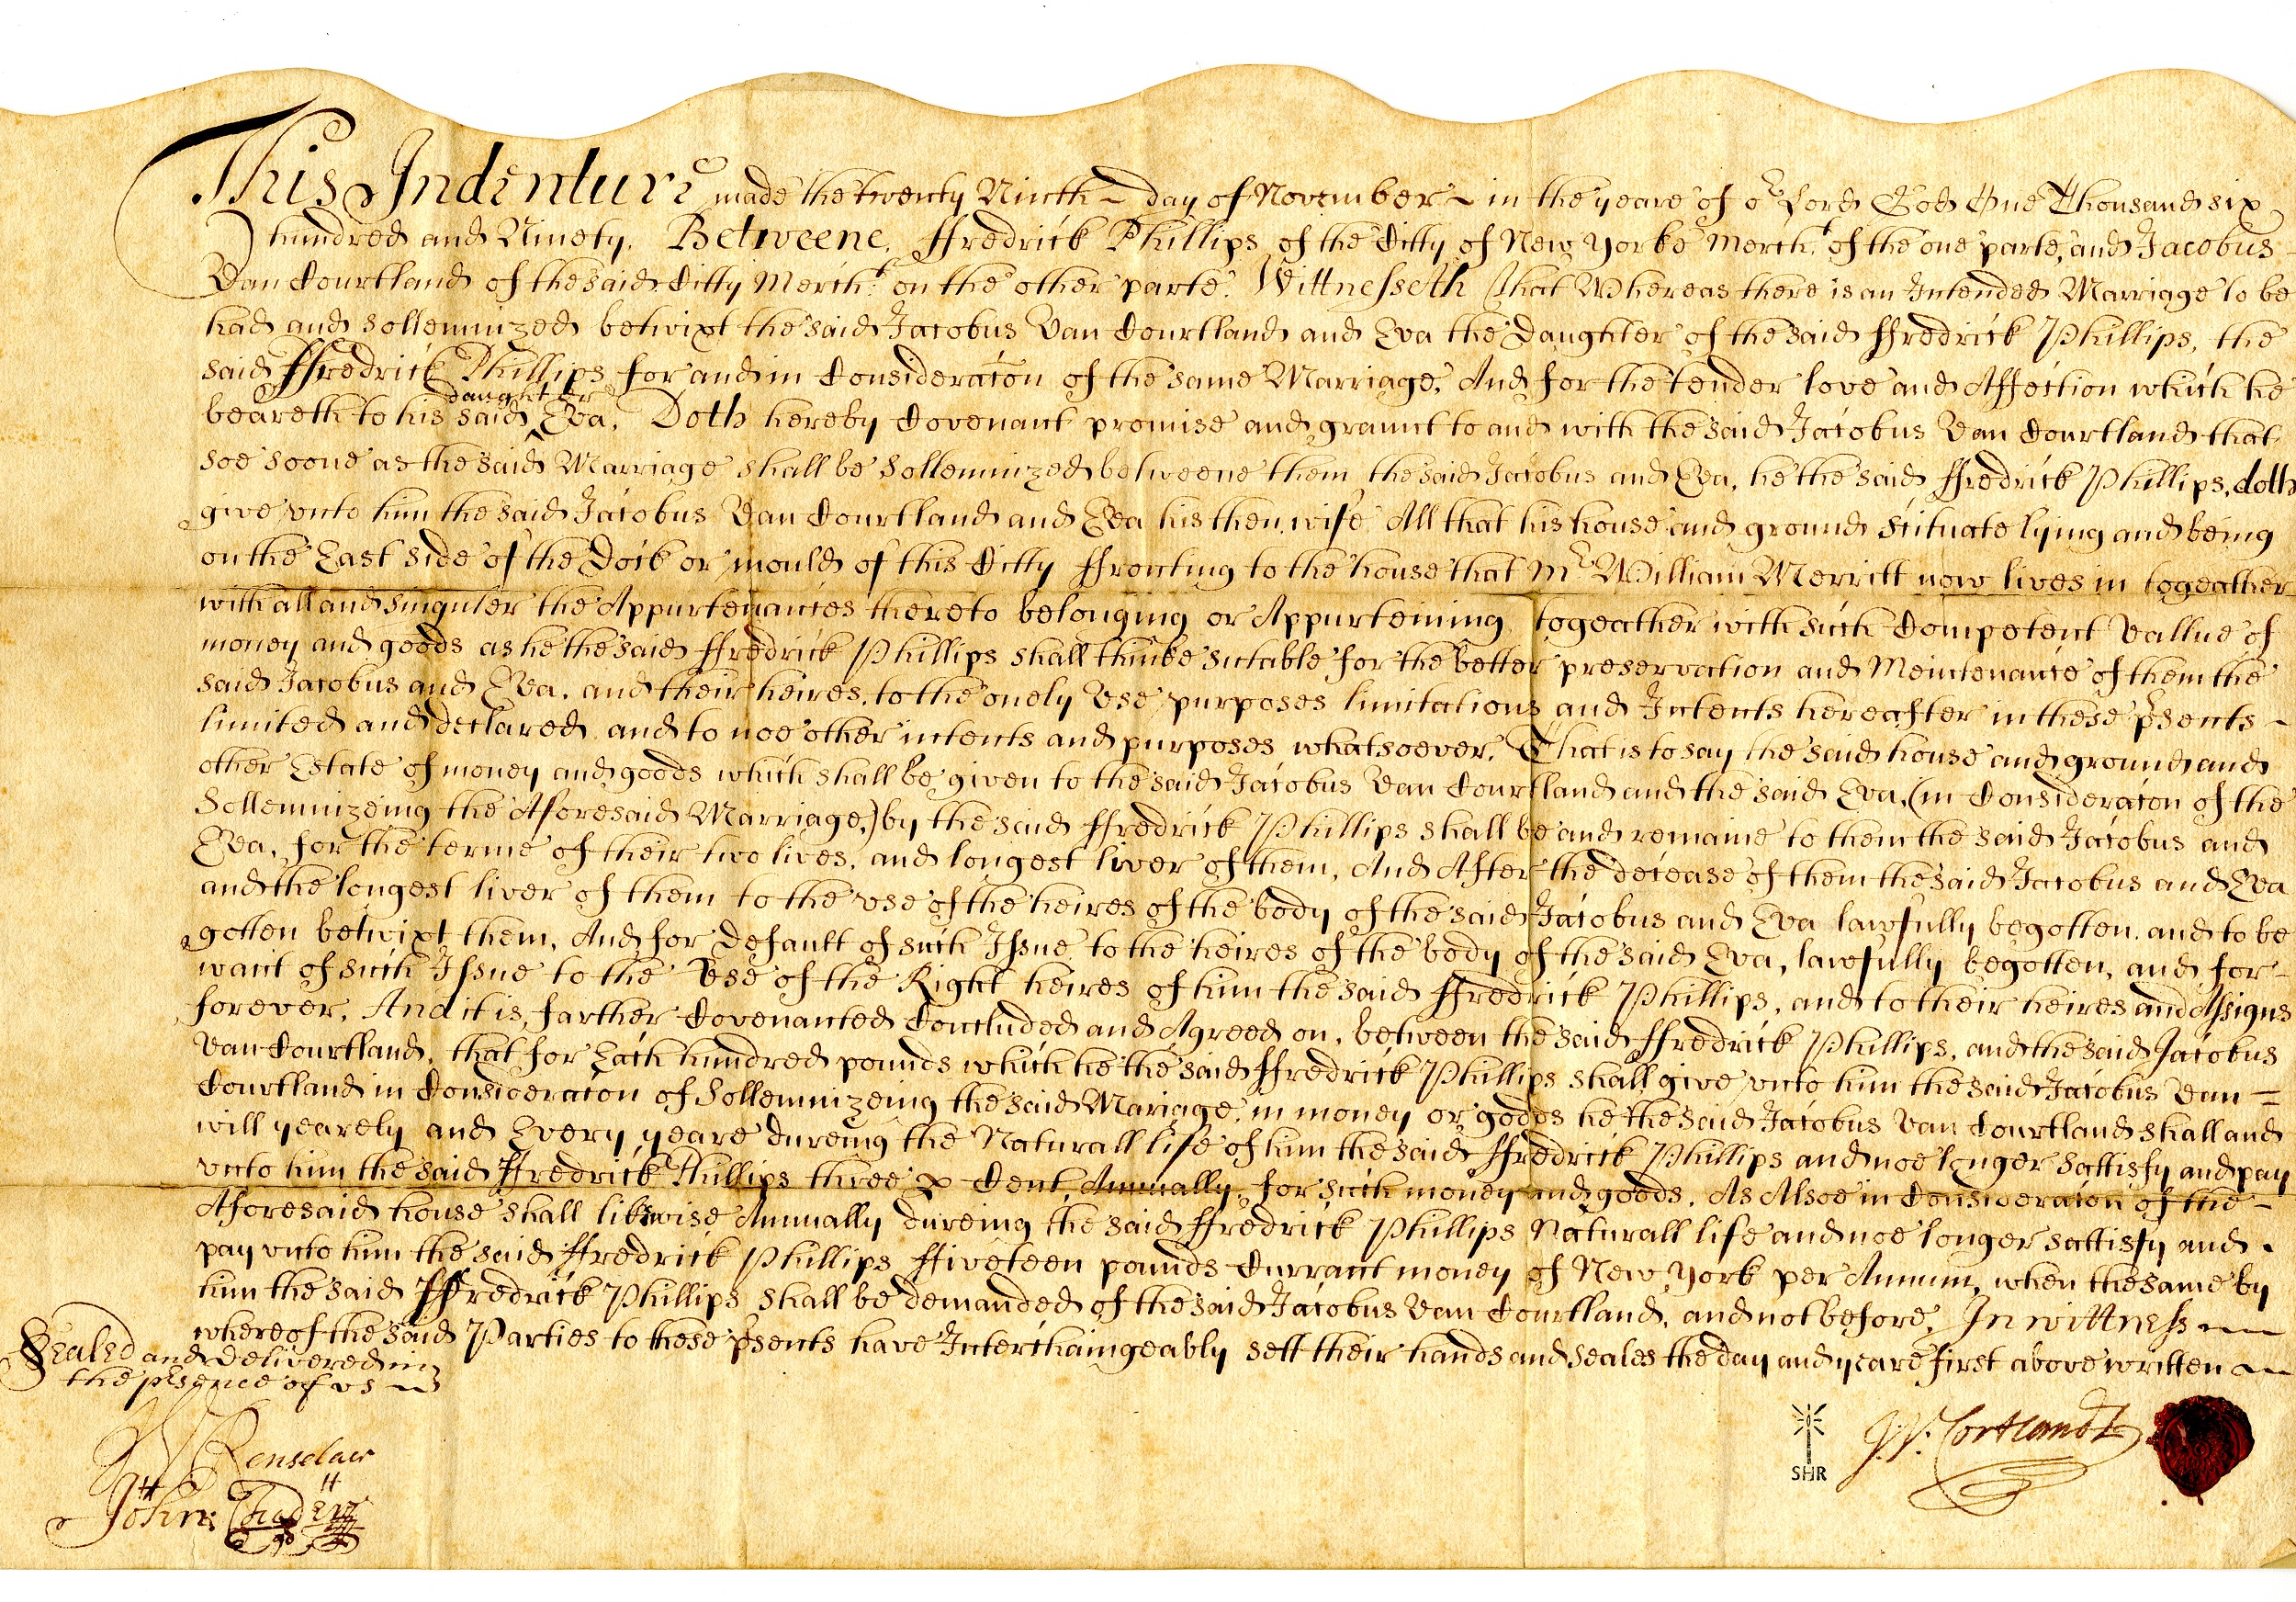 This Indenture made the twenty Ninth day of November in the yeare of or Lord God One Thousand six
hundred and Ninety. Betweene ffredrick Phillips of the Citty of New Yorke Mercht. of the one parte, and Jacobus
Van Courtland of the said Citty Mercht. on the other parte. Wittnesseth That Whereas there is an Intended Marriage to be
had and sollemnized betwixt the said Jacobus Van Courtland and Eva the Daughter of the said ffredrick Phillips, the
said ffredrick Phillips for and in Consideracon of the same Marriage, And for the tender love and Affection which he
daughter
beareth to his said Eva, Doth hereby Covenant promise and graunt to and with the said Jacobus Van Courtland that
soe soone as the said Marriage shall be sollemnized betweene them the said Jacobus and Eva, he the said ffredrick Phillips, doth
give vnto him the said Jacobus Van Courtland and Eva his then wife All that his house and ground scituate lying and being
on the East side of the Dock or mould of this Citty ffronting to the house that Mr William Merritt now lives in togeather
with all and singuler the Appurtenances thereto belonging or Appurteining togeather with such Competent Vallue of
money and goods as he the said ffredrick Phillips shall thinke sutable for the better preservation and Meintenance of them the
said Jacobus and Eva, and their heires, to the onely Vse purposes limitations and Intents hereafter in these psents
limited and declared and to noe other intents and purposes whatsoever. That is to say the said house and ground and
other Estate of money and goods which shall be given to the said Jacobus Van Courtland and the said Eva, (in Consideracon of the
Sollemnizeing the Aforesaid Marriage,) by the said ffredrick Phillips shall be and remaine to them the said Jacobus and
Eva, for the terme of their two lives, and longest liver of them, And After the decease of them the said Jacobus and Eva
and the longest liver of them to the vse of the heires of the body of the said Jacobus and Eva lawfully begotten and to be
gotten betwixt them, And for default of such Issue to the heires of the body of the said Eva, lawfully begotten, and for
want of such Issue to the Vse of the Right heires of him the said ffredrick Phillips, and to their heires and Assigns
forever, And it is farther Covenanted Concluded and Agreed on, between the said ffredrick Phillips, and the said Jacobus
Van Courtland, that for Each hundred pounds which he the said ffredrick Phillips shall give vnto him the said Jacobus Van =
Courtland in Consideracon of Sollemnizeing the said Mariage, in money or goods he the said Jacobus Van Courtland shall and
will yearely and Every yeare dureing the Naturall life of him the said ffredrick Phillips and noe longer sattisfy and pay
vnto him the said ffredrick Phillips three p Cent, Annually, for such money and goods, As Alsoe in Consideracon of the
Aforesaid house shall likewise Annually dureing the said ffredrick Phillips Naturall life and noe longer sattisfy and
pay vnto him the said ffredrick Phillips ffiveteen pounds Currant money of New York per Annum, when the same by
him the said ffredrick Phillips shall be demanded of the said Jacobus Van Courtland, and not before, In wittness
whereof the said Parties to these psents have Interchaingeably sett their hands and Seales the day and yeare first above written
Sealed and delivered in
the psence of vs
Renselaer
John
J.V. Cortlandt
SHR